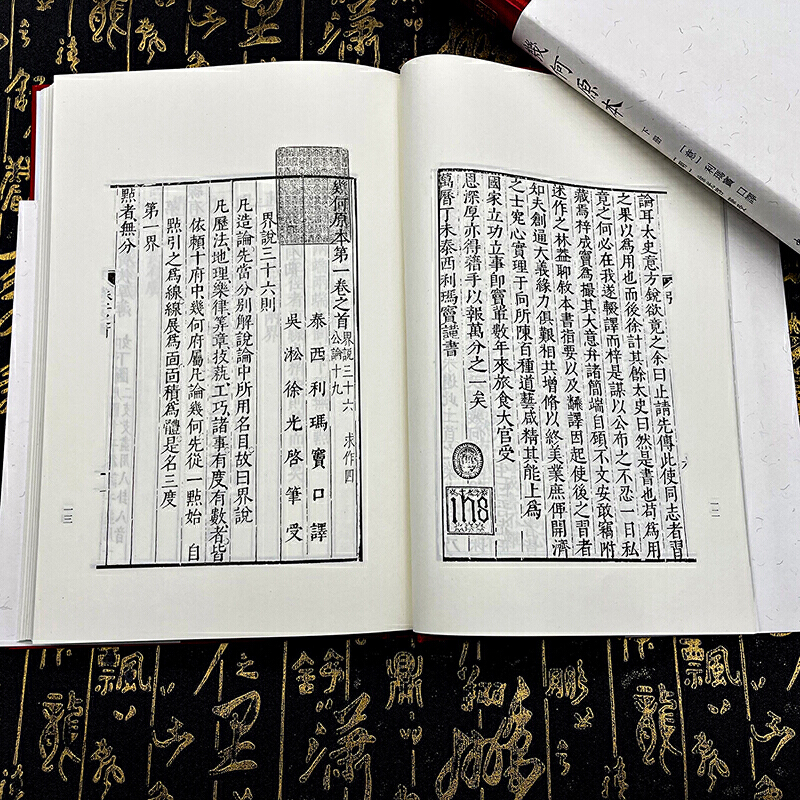 論耳太史意方銳欲竟之余曰止請先傳此使同志者習
之果以爲用也而後徐計其餘太史曰然是書也苟爲用
竟之何必在我遂輟譯而梓是謀以公布之不忍一日私
藏焉梓成竇爲撮其大意弁諸簡端自顧不文安敢竊附
述作之林益聊敘本書指要以及翻譯因起使後之習者
如夫創通大義緣力俱艱相共增脩以終美業庶俾開濟
之士究心實理于向所陳百種道藝咸精其能上爲
國家立功立事即竇單數年來旅食大官受
恩深厚亦得藉手以報萬分之一矣
萬曆丁未泰西利瑪竇謹書
ihs
一二
幾何原本第一卷之首 界說三十六 公論十九 求作四
泰西利瑪竇口譯
吳淞徐光啓筆受
界說三十六則
凡造論先當分別解說論中所用名目故曰界說
凡歷法地理樂律筭章技藝工巧諸事有度有數者皆
依賴十府中幾何府屬凡論幾何先從一點始 自
點引之爲線線展爲面面積爲體是名三度
第一界
點者無分
一三
幾何原本 下冊 〔意〕利瑪竇 口譯